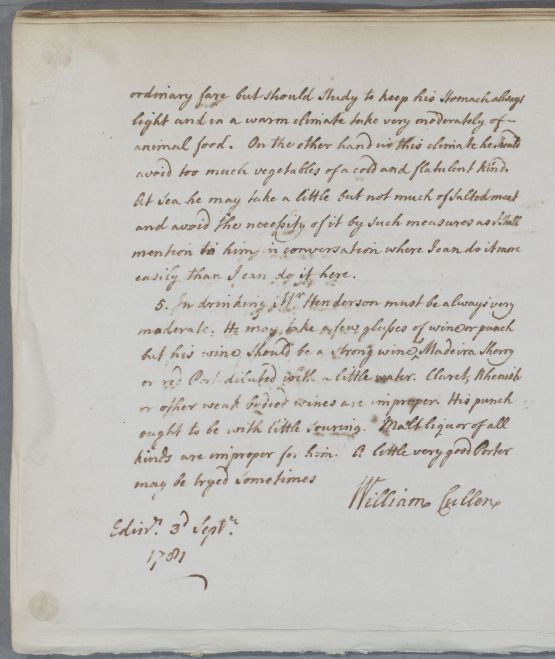 ordinary fare but should study to keep his Stomach always
light and in a warm climate take very moderately of
animal food. On the other hand in this climate he should
avoid too much vegetables of a cold and flatulent kind.
At Sea he may take a little but not much of salted meat
and avoid the necessity of it by such measures as I shall
mention to him in conversation where I can do it more
easily than I can do it here.
5. In drinking Mr Henderson must be always very
moderate. He may take a few glasses of wine or punch
but his wine should be a strong wine, Madeira Sherry
or red Port diluted with a little water. Claret, Rhenish
or other weak bodied wines are improper. His punch
ought to be with little souring. Malt liquor of all
kinds are improper for him. A little very good Porter
may be tryed sometimes
William Cullen
Edinr. 3d Septr.
1781